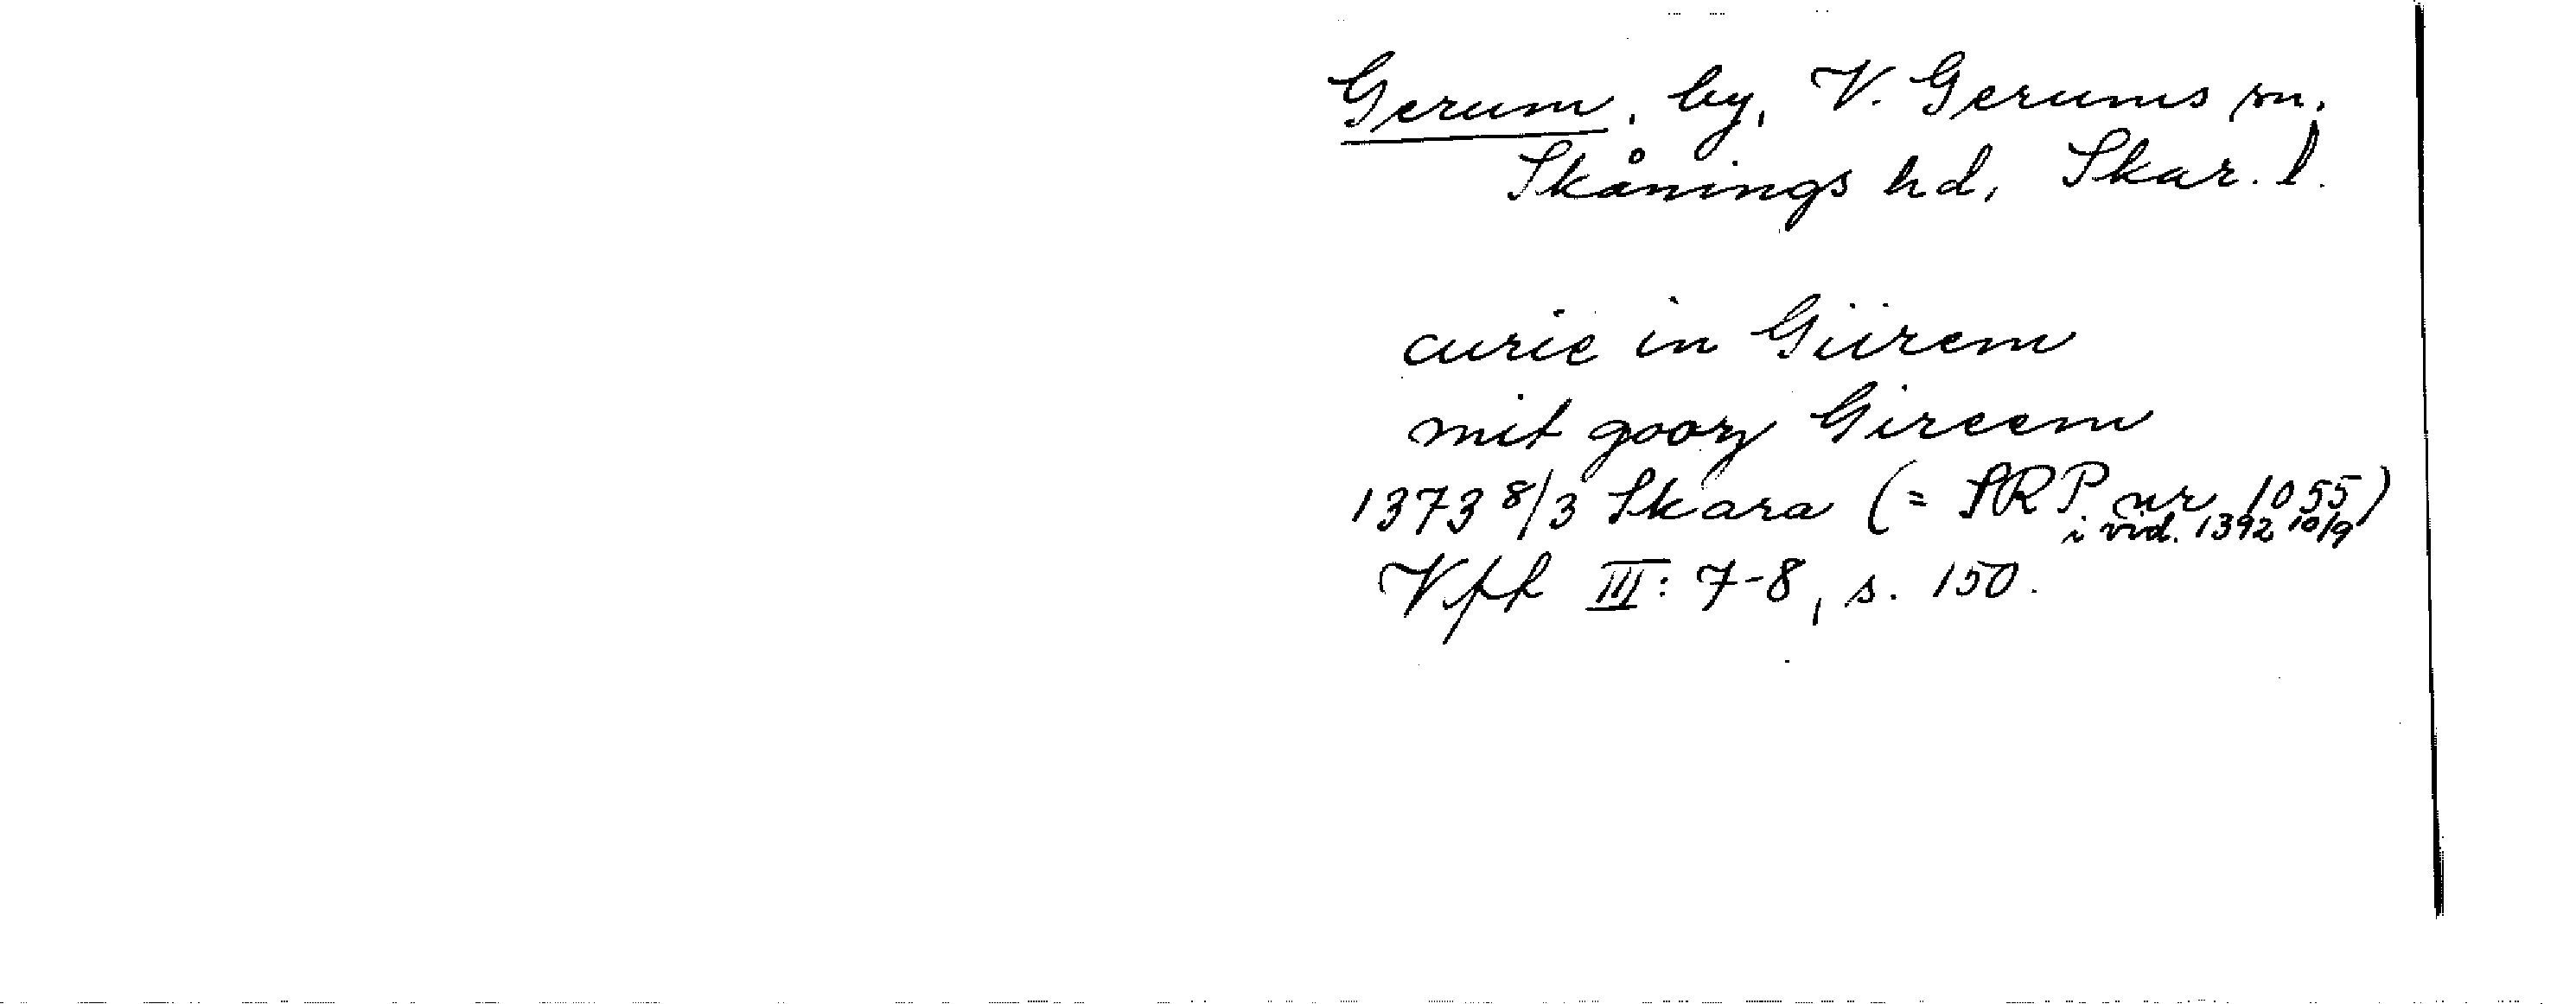 Gerum, by, V. Gerums sn,
Skånings hd, Skar. l.
curie in Giirem
mit goorz Gireem
1373 8/3 Skara (= SRP nr 1055)
i vid. 1392 10/9
Vff III: 7-8, s. 150.